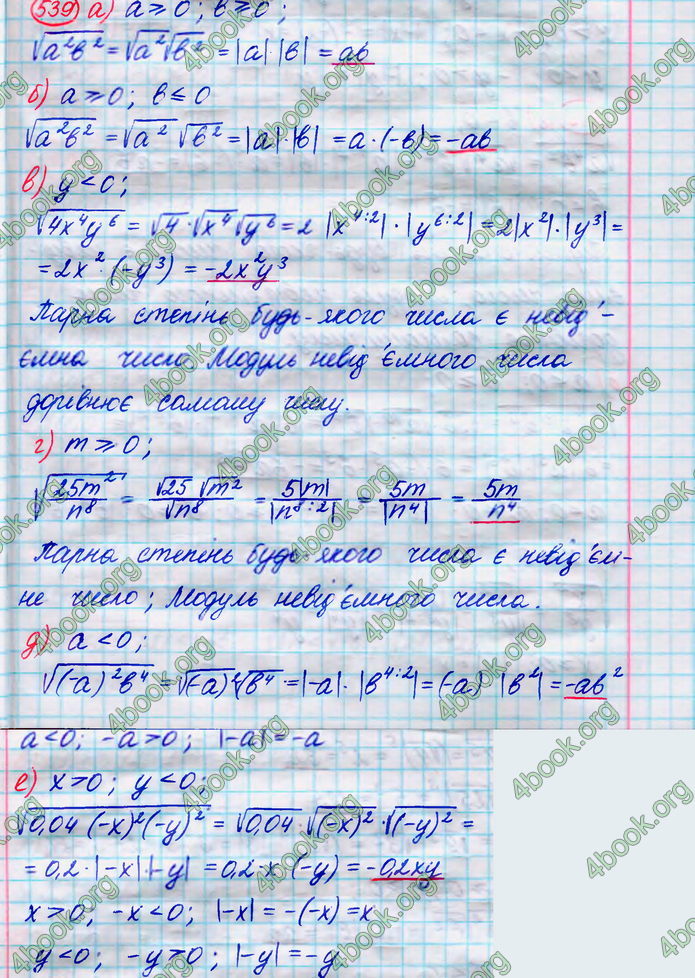 539 а) a ⩾ 0; в ⩾ 0;
√(a²в²) = √a² √в² = |a|·|в| = ав
б) a ⩾ 0; в ≤ 0
√(a²в²) = √a² √в² = |a|·|в| = a·(-в) = -ав
в) y < 0;
√(4x⁴y⁶) = √4·√x⁴ √y⁶ = 2 |x^(4:2)|·|y^(6:2)| = 2|x²|·|y³| =
= 2x²·(-y³) = -2x²y³
Парна степінь будь-якого числа є невід'-
ємна число. Модуль невід'ємного числа
дорівнює самому числу.
г) m ⩾ 0;
√(25m²/n⁸) = √25 √m²/√n⁸ = 5|m|/|n^(8:2)| = 5m/|n⁴| = 5m/n⁴
Парна степінь будь-якого числа є невід'єм-
не число; Модуль невід'ємного числа.
д) a < 0;
√((-a)²в⁴) = √(-a)² √в⁴ = |-a|·|в^(4:2)| = (-a) |в²| = -ав²
a<0; -a>0; |-a| = -a
е) x>0; y<0;
√(0,04 (-x)²(-y)²) = √0,04·√(-x)²·√(-y)² =
= 0,2·|-x|·|-y| = 0,2·x·(-y) = -0,2xy
x>0; -x<0; |-x| = -(-x) = x
y<0; -y>0; |-y| = -y
4book.org